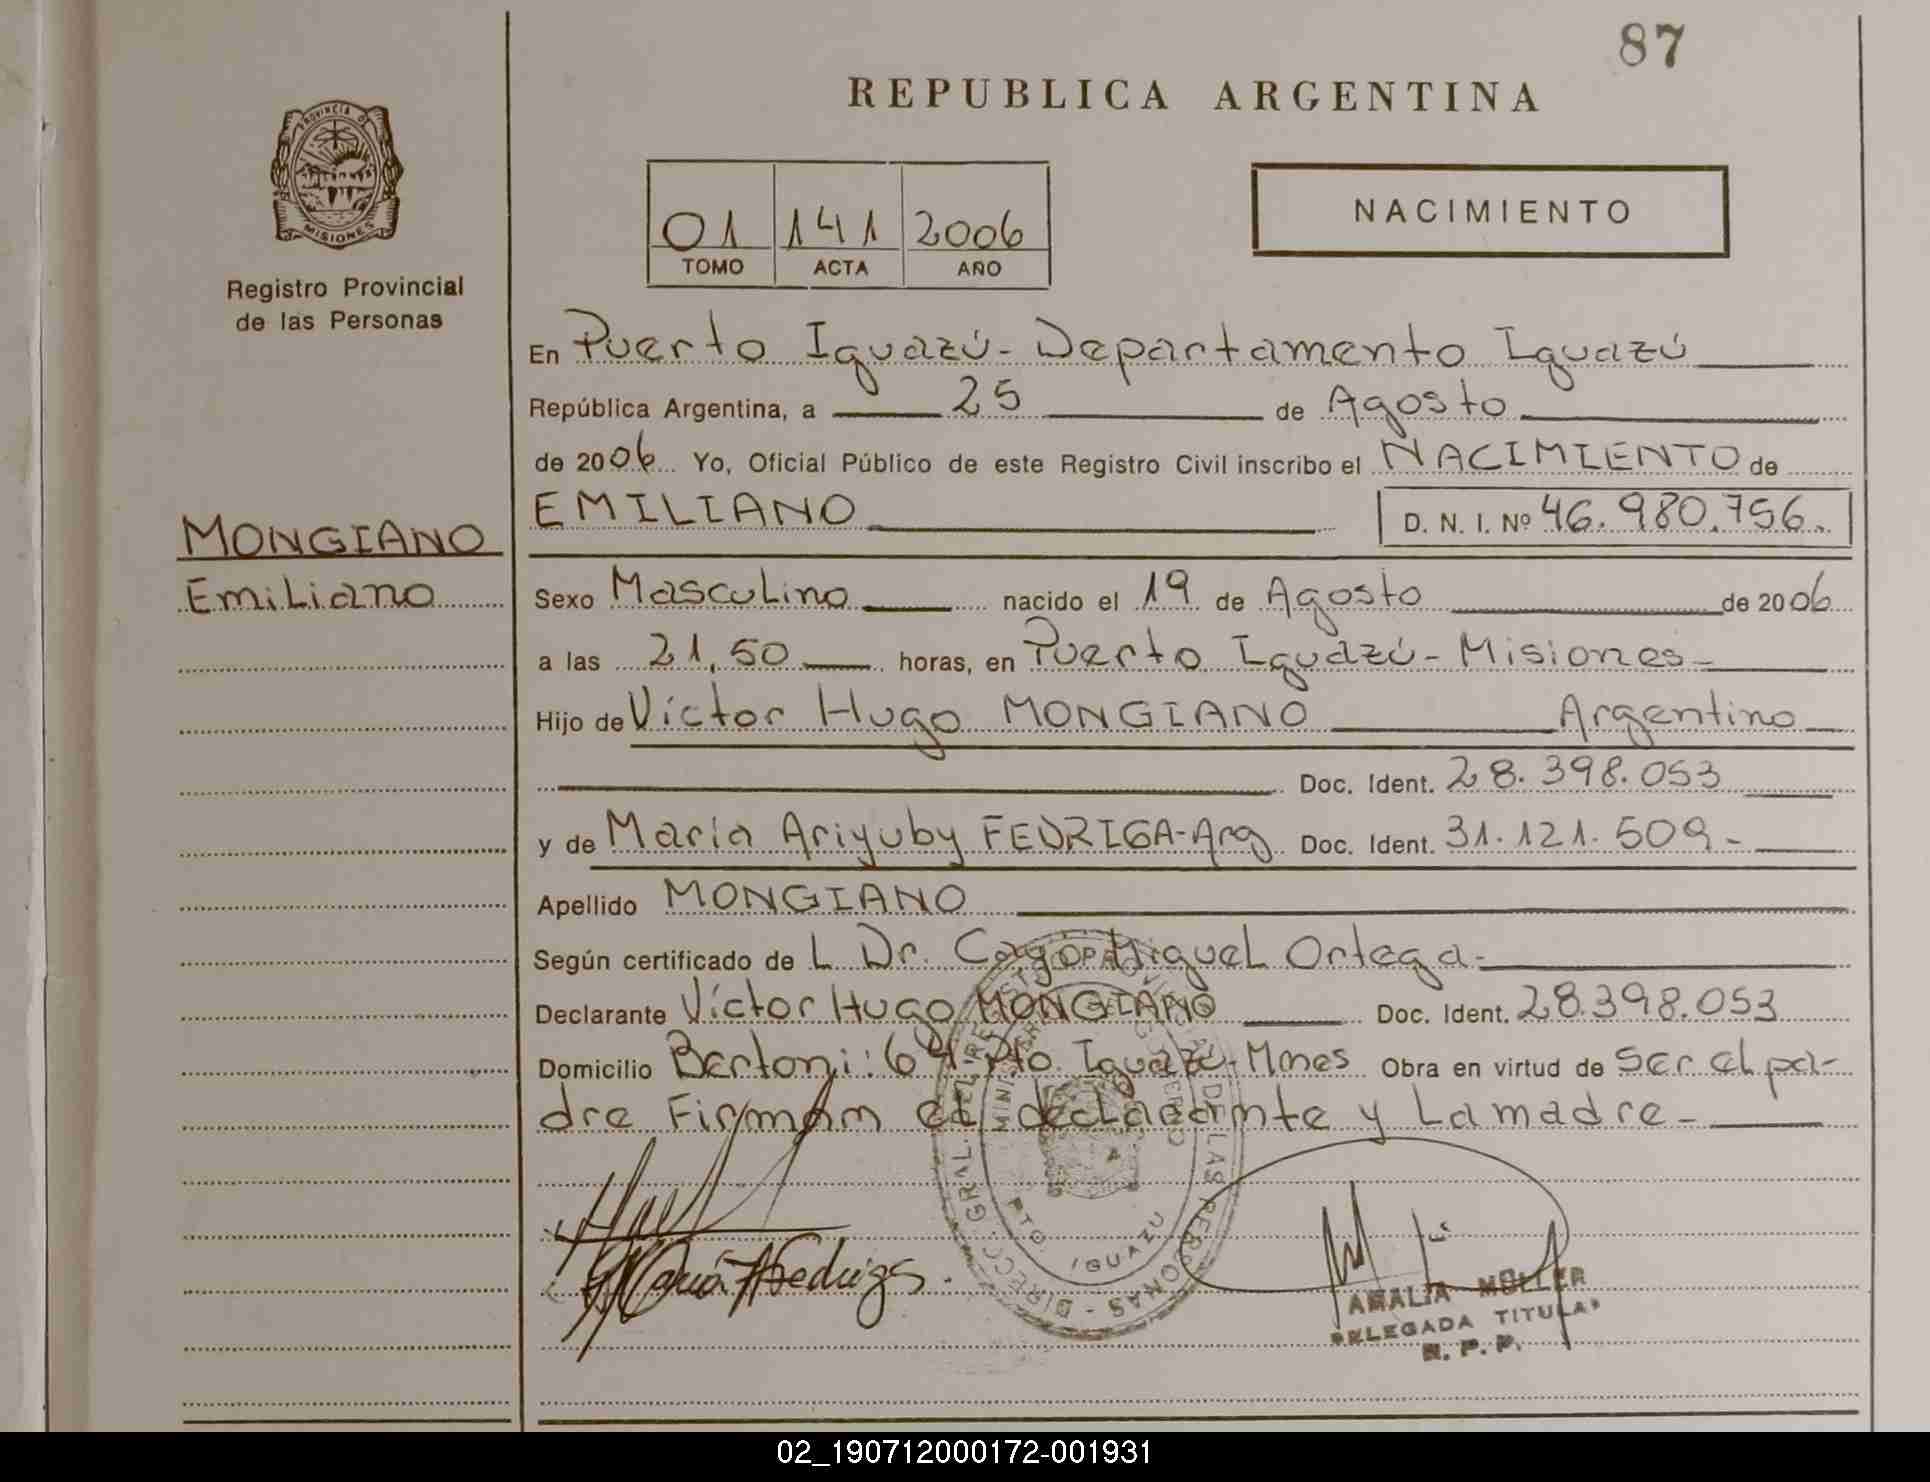 87
REPUBLICA ARGENTINA
PROVINCIA DE
MISIONES
Registro Provincial
de las Personas
01 141 2006
TOMO ACTA AÑO
NACIMIENTO
En Puerto Iguazú - Departamento Iguazú
República Argentina, a 25 de Agosto
de 2006 Yo, Oficial Público de este Registro Civil inscribo el NACIMIENTO de
EMILIANO D. N. I. Nº 46.980.756.
MONGIANO
Emiliano
Sexo Masculino nacido el 19 de Agosto de 2006
a las 21,50 horas, en Puerto Iguazú - Misiones -
Hijo de Víctor Hugo MONGIANO Argentino
Doc. Ident. 28.398.053
y de María Ariyuby FEDRIGA - Arg Doc. Ident. 31.121.509 -
Apellido MONGIANO
Según certificado de L Dr. Miguel Ortega -
Declarante Víctor Hugo MONGIANO Doc. Ident. 28.398.053
Domicilio Bertoni: 64 Pto Iguazú - Mnes Obra en virtud de ser el pa-
dre Firman el declarante y La madre -
PTO. IGUAZU
AMALIA MULLER
DELEGADA TITULAR
R. P. P.
02_190712000172-001931